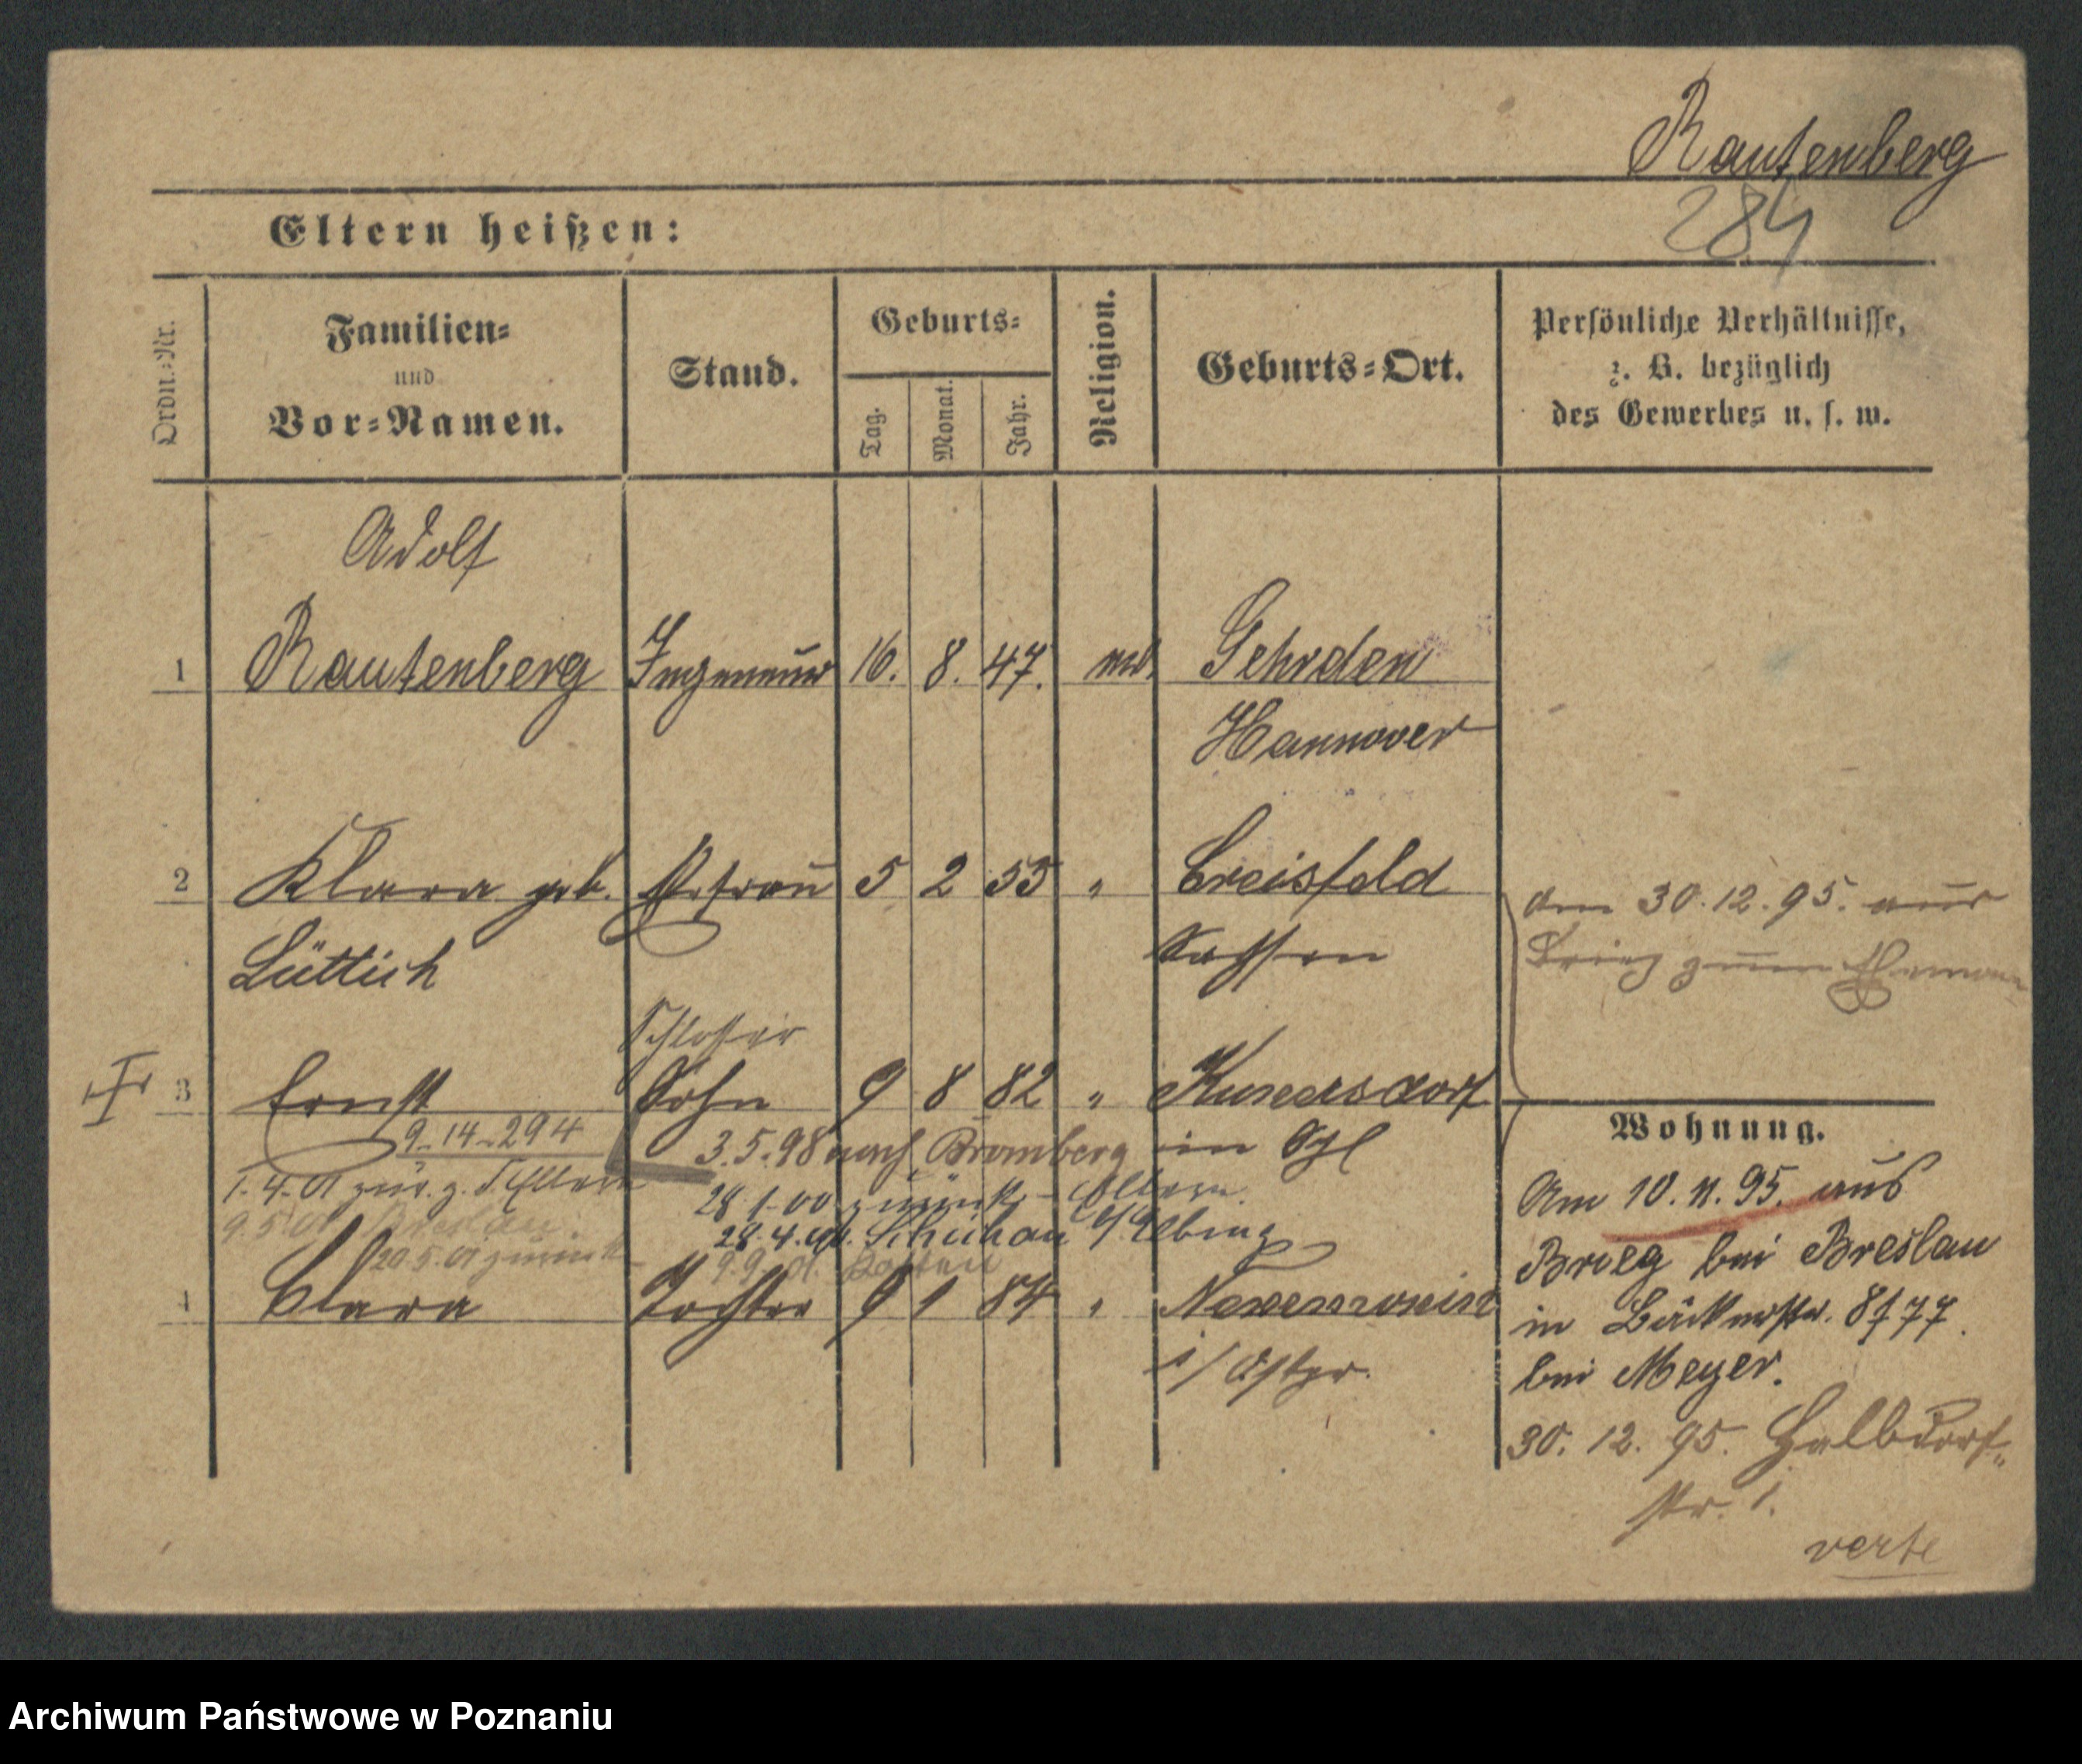 Rautenberg
284
Eltern heißen:
Ordn.-Nr.
Familien-
und
Vor-Namen.
Stand.
Geburts-
Tag.
Monat.
Jahr.
Religion.
Geburts-Ort.
Persönliche Verhältnisse,
z. B. bezüglich
des Gewerbes u. s. w.
Adolf
1 Rautenberg Ingenieur 16. 8. 47. Gehrden
Hannover
2 Klara geb. Ehefrau 5 2 55 " Creisfeld
Lüttich Sachsen
am 30.12.95. aus
Brieg zum Ehemann
Schlosser
3 Ernst Sohn 9 8 82 " Kunersdorf
9-14-294
3.5.98 nach Bromberg in Schl
1.4.01 zur. z. d. Eltern
28 1.00 zurück - Eltern.
9.5.01 Breslau
28.4. Schichau b/Elbing
20.5.01 zurück
9.9.
4 Clara Tochter 9 1 84 "
i/ Ostpr.
Wohnung.
Am 10.11.95. aus
Brieg bei Breslau
in
bei Meyer.
30. 12. 95. Halbdorf-
str. 1.
verte
Archiwum Państwowe w Poznaniu